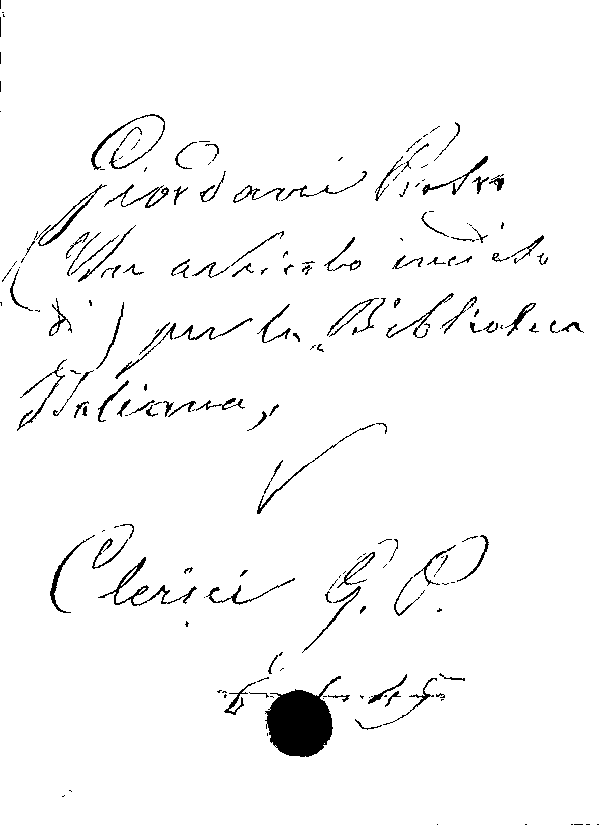 Giordani Pietro
(Un articolo inedito
di) per la „Biblioteca
Italiana„
Clerici G. P.